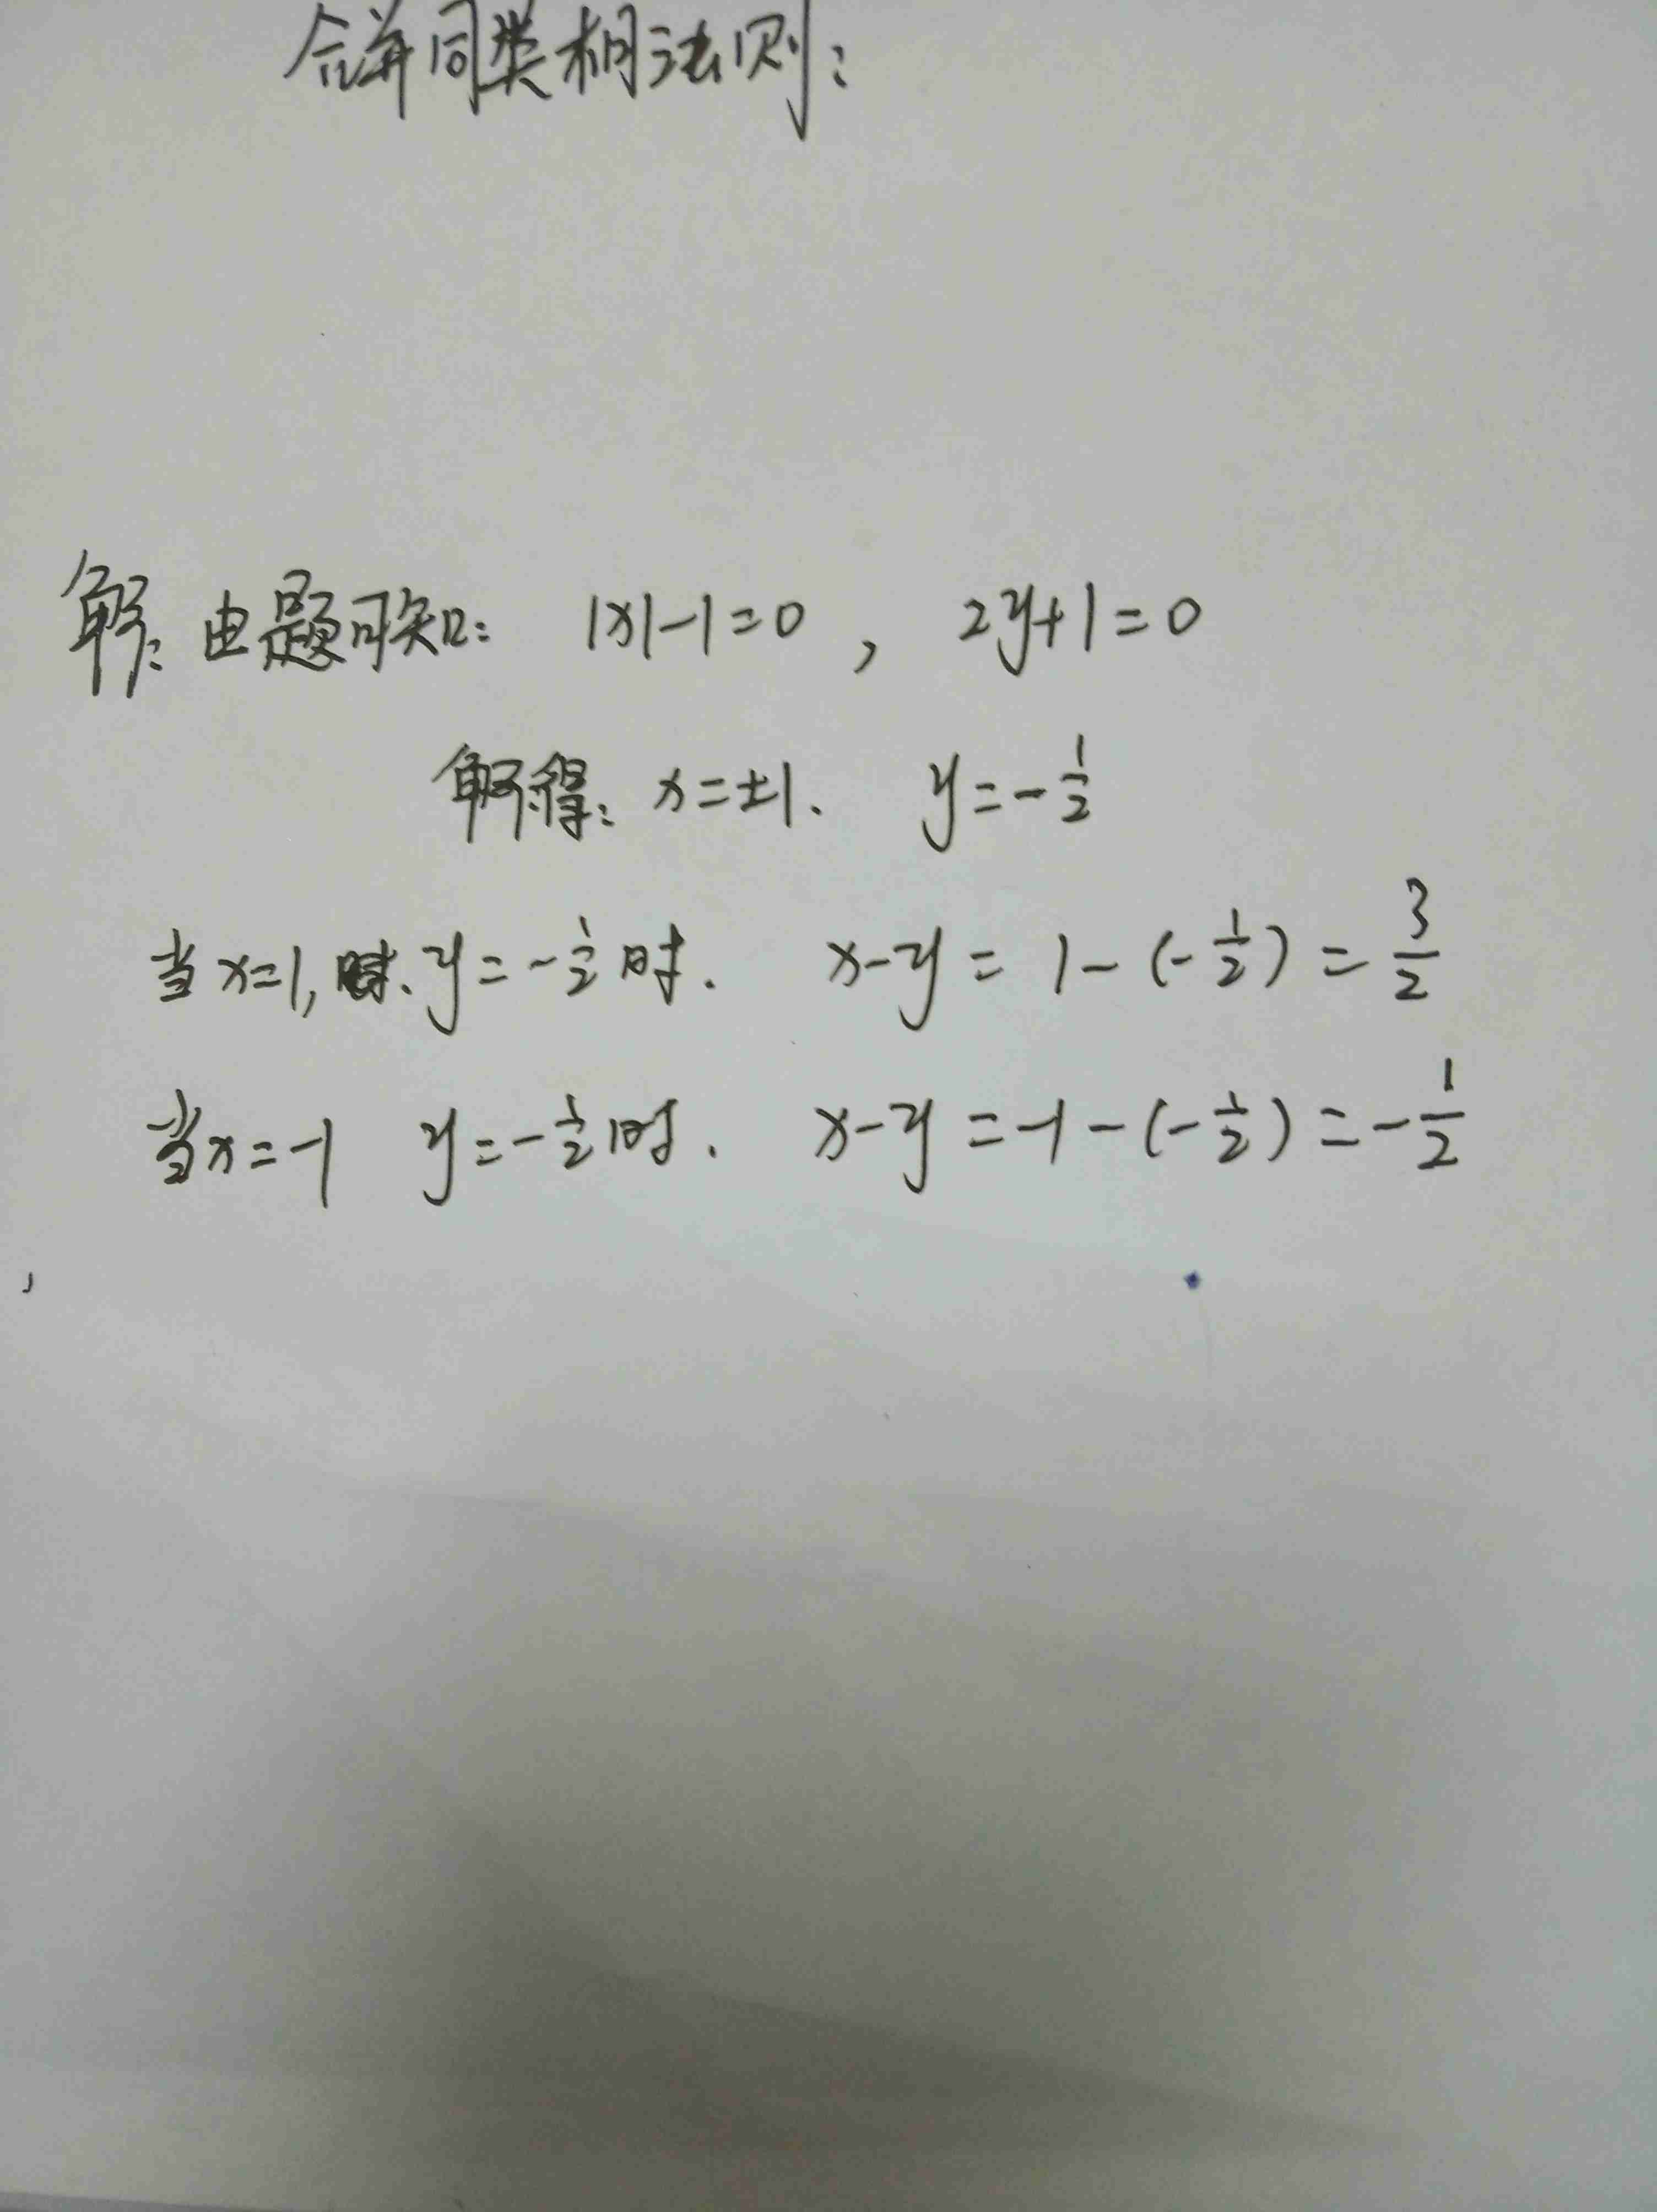 合并同类相法则:
解: 由题可知: |x|-1=0 , 2y+1=0
解得: x=±1. y=-1/2
当x=1, y=-1/2时. x-y=1-(-1/2)=3/2
当x=-1 y=-1/2时. x-y=-1-(-1/2)=-1/2